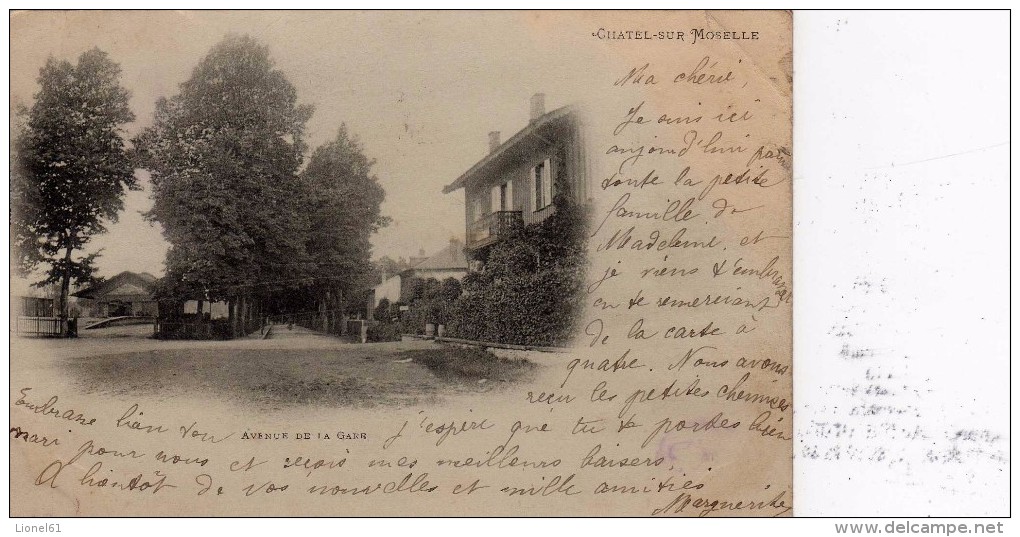 CHATEL-SUR MOSELLE
Ma chérie,
Je suis ici
aujourd'hui par
toute la petite
famille de
Madeleine, et
je viens t'embrasser
en te remerciant
de la carte à
quatre. Nous avons
reçu les petites chemises
AVENUE DE LA GARE
j'espère que tu te portes bien
Embrasse bien ton
mari pour nous et reçois mes meilleurs baisers,
A bientôt de vos nouvelles et mille amitiés
Marguerite
Lionel61
http://www.delcampe.net